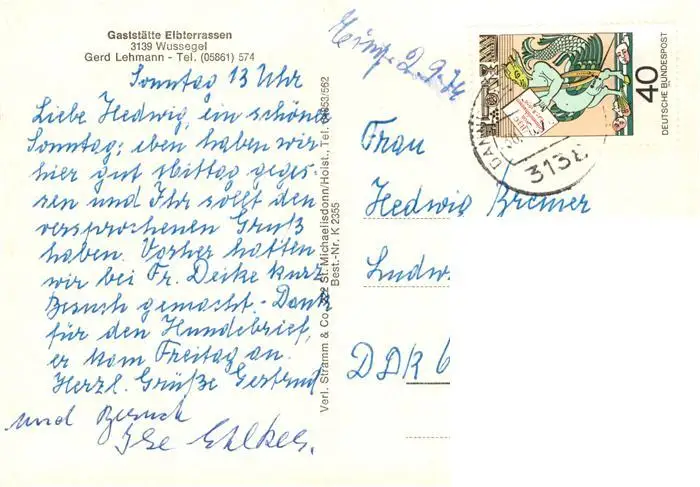 Gaststätte Elbterrassen
3139 Wussegel
Gerd Lehmann - Tel. (05861) 574
Sonntag 13 Uhr
Liebe Hedwig, ein schöne
Sonntag; eben haben wir
hier gut Mittag geges=
sen und Ihr sollt den
versprochenen Gruß
haben. Vorher hatten
wir bei Fr. Deike kurz
Besuch gemacht. - Dank
für den Hundebrief,
er kam Freitag an.
Herzl. Grüße Gertrud
und Besuch
Ilse Ehlkes.
Verl. Stramm & Co., St. Michaelisdonn/Holst., Tel. 04853/562
Best.-Nr. K 2355
2.9.
40
DEUTSCHE BUNDESPOST
DANN
3138
Frau
Hedwig Bremer
Ludw
DDR 6